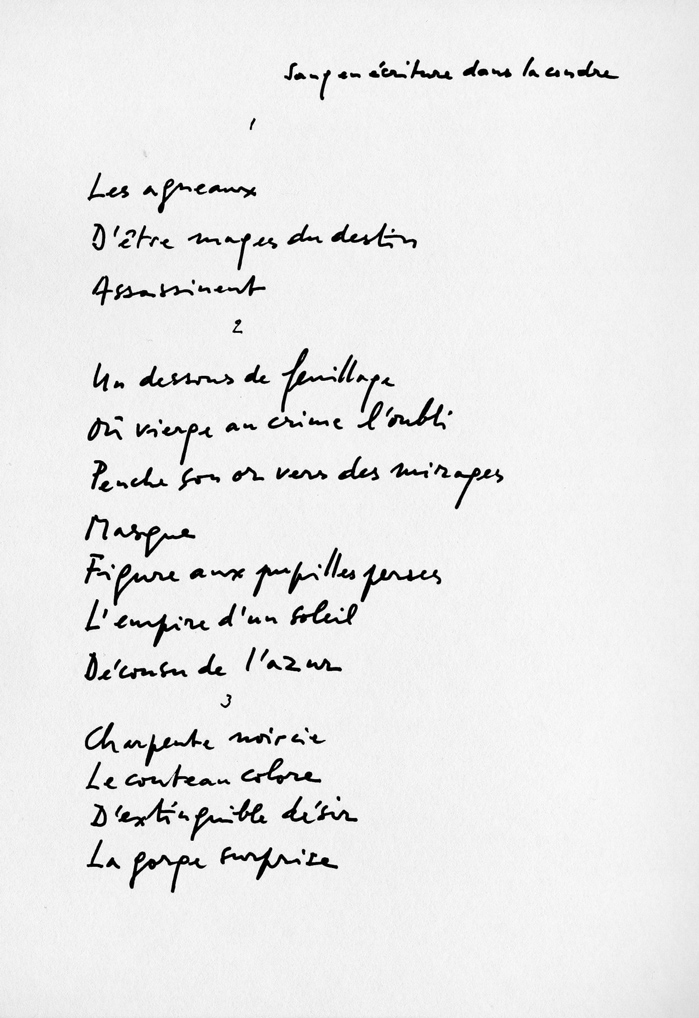 Sang en écriture dans la cendre
1
Les agneaux
D'être mages du destin
Assassinent
2
Un dessous de feuillage
Où vierge au crime l'oubli
Penche son or vers des mirages
Masque
Figure aux pupilles perses
L'empire d'un soleil
Décousu de l'azur
3
Charpente noircie
Le couteau colore
D'extinguible désir
La gorge surprise